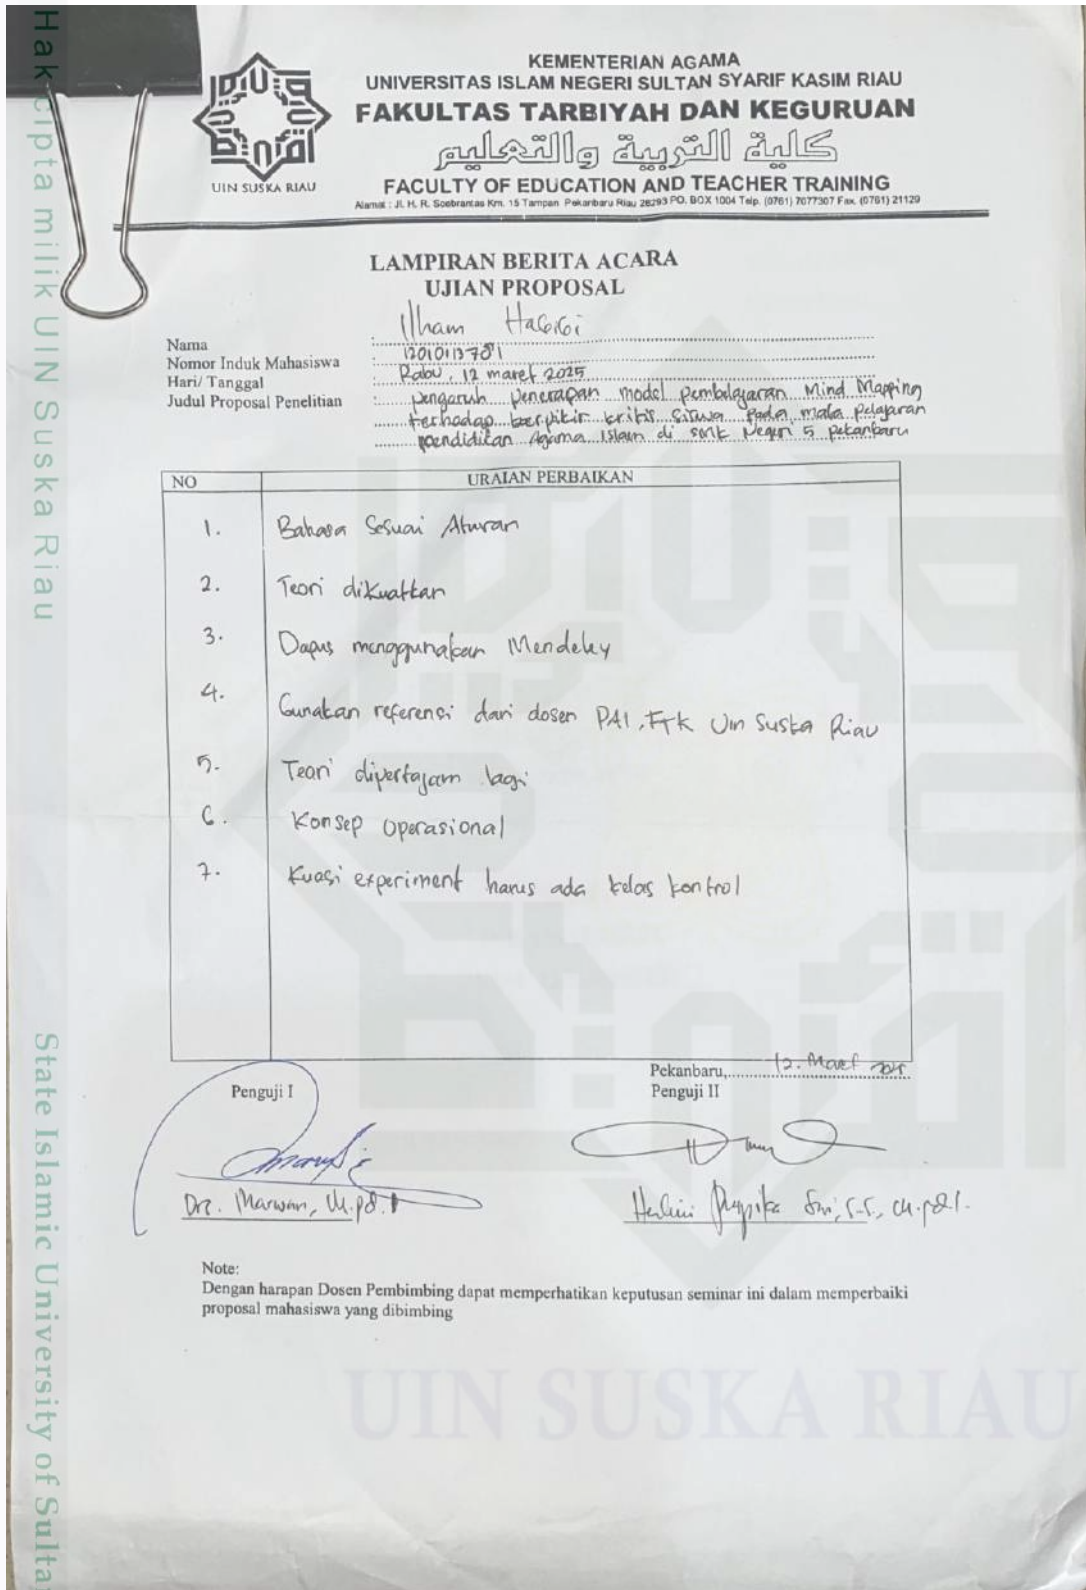 Hak cipta milik UIN Suska Riau
State Islamic University of Sultan
UIN SUSKA RIAU
KEMENTERIAN AGAMA
UNIVERSITAS ISLAM NEGERI SULTAN SYARIF KASIM RIAU
FAKULTAS TARBIYAH DAN KEGURUAN
كلية التربية والتعليم
FACULTY OF EDUCATION AND TEACHER TRAINING
Alamat : Jl. H. R. Soebrantas Km. 15 Tampan Pekanbaru Riau 28293 PO. BOX 1004 Telp. (0761) 7077307 Fax. (0761) 21129
LAMPIRAN BERITA ACARA
UJIAN PROPOSAL
Nama : Ilham Habibi
Nomor Induk Mahasiswa : 12010113781
Hari/ Tanggal : Rabu, 12 maret 2025
Judul Proposal Penelitian : pengaruh penerapan model pembelajaran Mind Mapping
terhadap berpikir kritis siswa pada mata pelajaran
pendidikan Agama Islam di smk Negeri 5 pekanbaru
NO URAIAN PERBAIKAN
1. Bahasa Sesuai Aturan
2. Teori dikuatkan
3. Dapus menggunakan Mendeley
4. Gunakan referensi dari dosen PAI, FTK Uin Suska Riau
5. Teori dipertajam lagi
6. Konsep Operasional
7. Kuasi experiment harus ada kelas kontrol
Pekanbaru, 12. Maret 2025
Penguji I Penguji II
Drs. Marwan, M.Pd.I
Herlini S.S., M.Pd.I.
Note:
Dengan harapan Dosen Pembimbing dapat memperhatikan keputusan seminar ini dalam memperbaiki
proposal mahasiswa yang dibimbing
UIN SUSKA RIAU